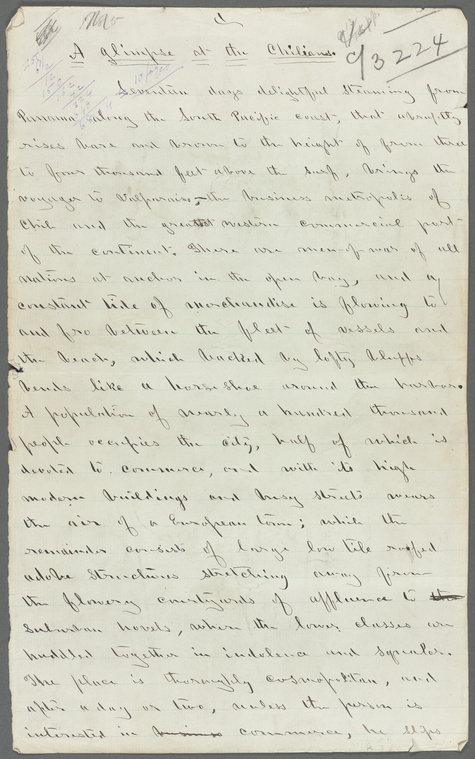 A Glimpse at the Chilians.
C/3224
Seventeen days delightful steaming from
Panama along the South Pacific coast, that abruptly
rises bare and brown to the height of from three
to four thousand feet above the surf, brings the
voyager to Valparaiso, the business metropolis of
Chili and the great western commercial port
of the continent. There are men-of-war of all
nations at anchor in the open bay, and a
constant tide of merchandise is flowing to
and fro between the fleet of vessels and
the beach, which backed by lofty bluffs
bends like a horseshoe around the harbor.
A population of nearly a hundred thousand
people occupies the city, half of which is
devoted to commerce, and with its high
modern buildings and busy streets wears
the air of a European town; while the
remainder consists of large low tile roofed
adobe structures stretching away from
the flowery courtyards of affluence to the
suburban hovels, where the lower classes are
huddled together in indolence and squalor.
The place is thoroughly cosmopolitan, and
after a day or two, unless the person is
interested in business commerce, he